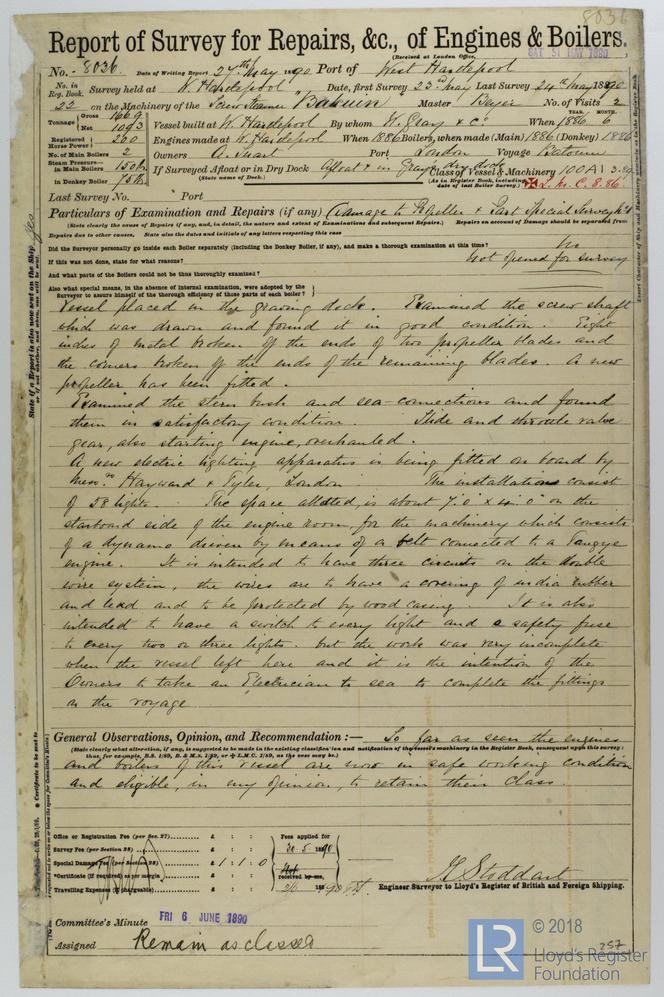 8036
Report of Survey for Repairs, &c., of Engines & Boilers.
(Received at London Office, SAT 31 MAY 1890)
No. 8036. Date of Writing Report 27th May 1890 Port of West Hartlepool
No. in Reg. Book. Survey held at W. Hartlepool Date, first Survey 23rd May Last Survey 24th May 1890
22 on the Machinery of the Screw steamer "Bakuin" Master No. of Visits 2
Tonnage Gross 1669 Net 1093
Vessel built at W. Hartlepool By whom W. Gray & Co When 1886 6
YEAR. MONTH.
Registered Horse Power 200 Engines made at W. Hartlepool When 1886 Boilers, when made (Main) 1886 (Donkey) 1886
No. of Main Boilers 2 Owners A. Stuart Port London Voyage Batoum
Steam Pressure in Main Boilers 150 lb If Surveyed Afloat or in Dry Dock Afloat & in Gray's dry dock
(State name of Dock.)
in Donkey Boiler 75 lb
Class of Vessel & Machinery 100A1
(As in Register Book, including date of last Boiler Survey.) L.M.C. 8.86
Last Survey No. " Port
Particulars of Examination and Repairs (if any) Damage to Propeller & Part Special Survey No 1
(State clearly the cause of Repairs if any, and in detail, the nature and extent of Examinations and subsequent Repairs.) Repairs on account of Damage should be separated from
Repairs due to other causes. State also the dates and initials of any letters respecting this case
Did the Surveyor personally go inside each Boiler separately (including the Donkey Boiler, if any), and make a thorough examination at this time? No
If this was not done, state for what reasons? Not opened for survey
And what parts of the Boilers could not be thoroughly examined?
Also what special means, in the absence of internal examination, were adopted by the
Surveyor to assure himself of the thorough efficiency of those parts of each boiler?
Vessel placed in the graving dock. Examined the screw shaft
which was drawn and found it in good condition. Eight
inches of metal broken off the ends of two propeller blades and
the corners broken off the ends of the remaining blades. A new
propeller has been fitted.
Examined the stern bush and sea-connections and found
them in satisfactory condition. Slide and throttle valve
gear, also starting engine, overhauled.
A new electric lighting apparatus is being fitted on board by
Messrs Hayward & Tyler, London. The installation consist
of 58 lights. The space allotted, is about 7'.0" x 4'.0" on the
starboard side of the engine room, for the machinery which consists
of a dynamo driven by means of a belt connected to a Tangye
engine. It is intended to have three circuits on the double
wire system, the wires are to have a covering of india rubber
and lead and to be protected by wood casing. It is also
intended to have a switch to every light and a safety fuse
to every two or three lights. but the work was very incomplete
when the vessel left here and it is the intention of the
Owners to take an Electrician to sea to complete the fittings
on the voyage
General Observations, Opinion, and Recommendation :— So far as seen the engines
(State clearly what alteration, if any, is suggested to be made in the existing classification and notification of the vessel's machinery in the Register Book, consequent upon this survey:
thus, for example, B.S. 1/89, B. & M.S. 1/89, or L.M.C. 1/89, as the case may be.)
and boilers of this vessel are now in safe working condition
and eligible, in my opinion, to retain their Class.
Office or Registration Fee (per Sec. 27) £ : :
Survey Fee (per Section 28) £ : :
Special Damage Fee (per Section 28) £ 1 : 1 : 0
*Certificate (if required) as per margin £ : :
Travelling Expenses (if chargeable) £ : :
Fees applied for
30.5.1890
received by me,
2/6 1890
J. Stoddart
Engineer Surveyor to Lloyd's Register of British and Foreign Shipping.
Committee's Minute FRI 6 JUNE 1890
Assigned Remain as classed
257
LR
© 2018
Lloyd's Register
Foundation